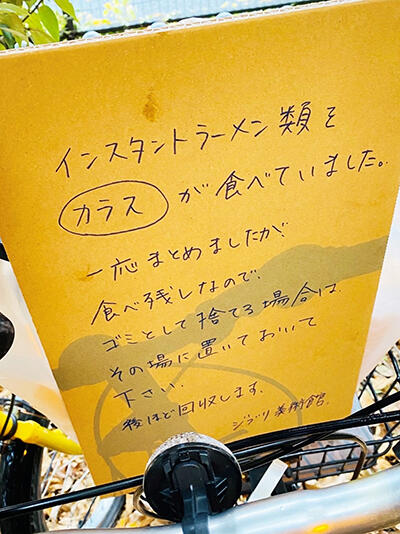 インスタントラーメン類を
カラスが食べていました。
一応まとめましたが、
食べ残しなので、
ゴミとして捨てる場合は、
その場に置いておいて
下さい。
後ほど回収します。
ジブリ美術館.